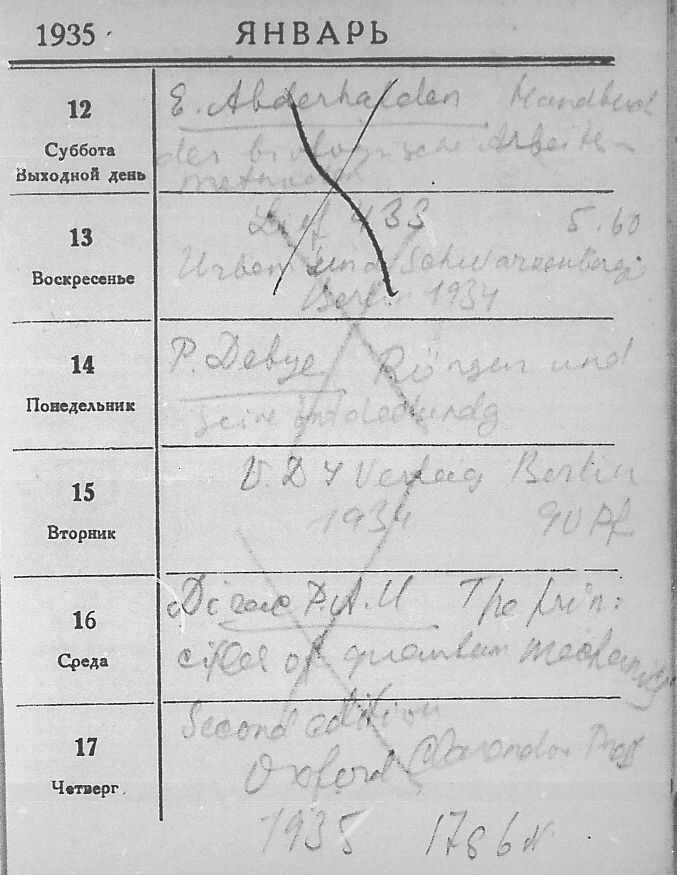 1935 ЯНВАРЬ
12
Суббота
Выходной день
E. Abderhalden Handbuch
der biologische Arbeiten
13
Воскресенье
Lief 433 5.60
Urban und Schwarzenberg
Berlin 1934
14
Понедельник
P. Debye Röngen und
seine
15
Вторник
V.D I Verlag Berlin
1934 90 Pf.
16
Среда
Dirac P.A.M The prin:
ciples of quantum mechanics
17
Четверг
Second edition
Oxford Clarendon Press
1935 17s 6d